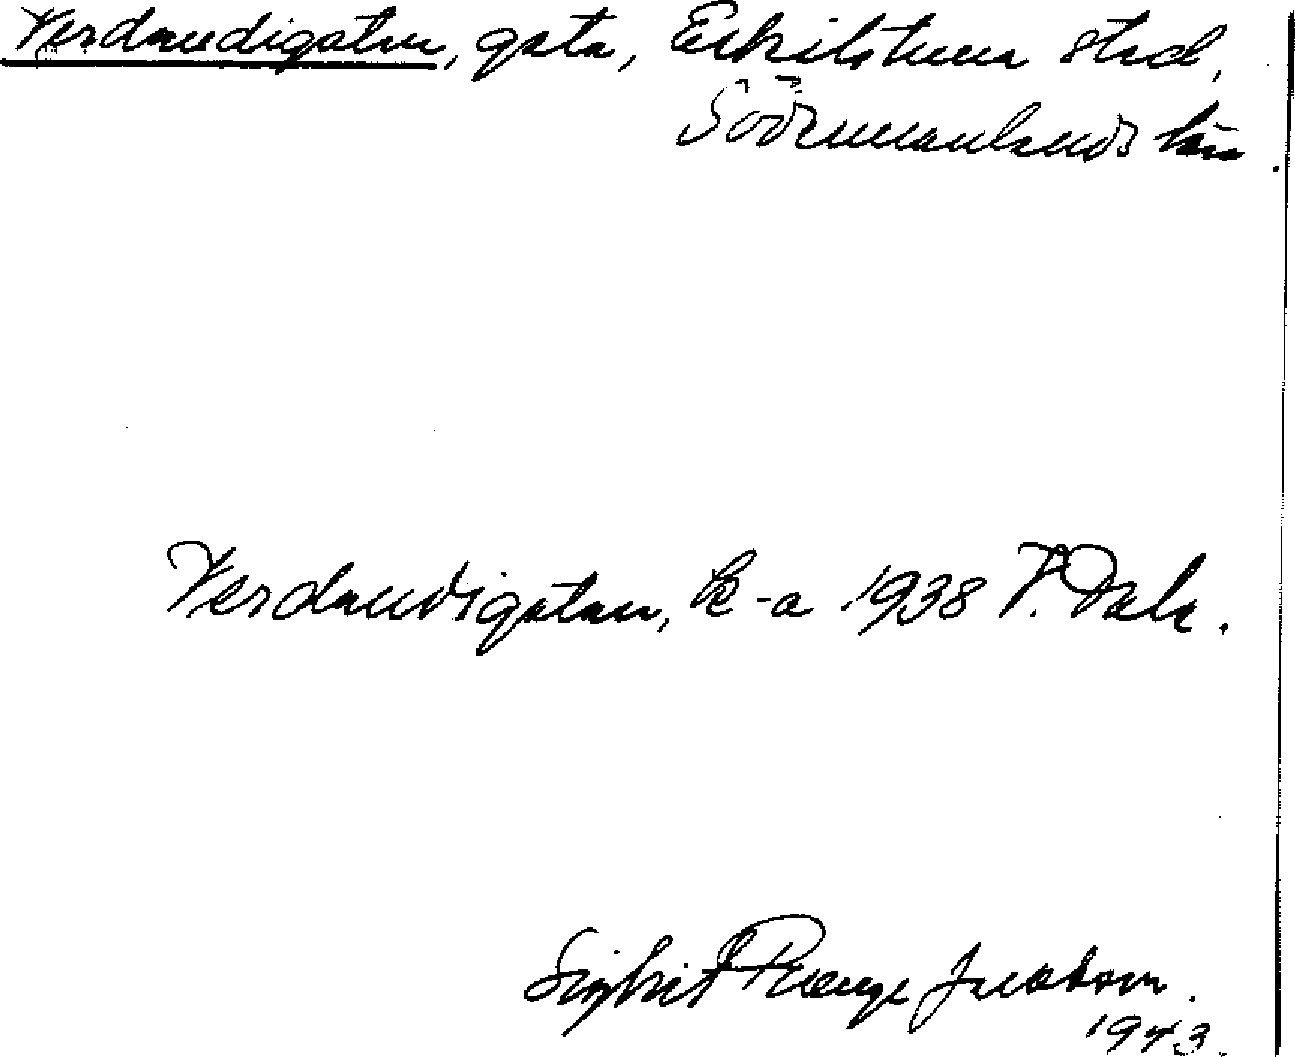 Verdandigatan, gata, Eskilstuna stad,
Södermanlands län.
Verdandigatan, k-a 1938 V. Dala.
Sigbrit Plænge Jacobson.
1943.